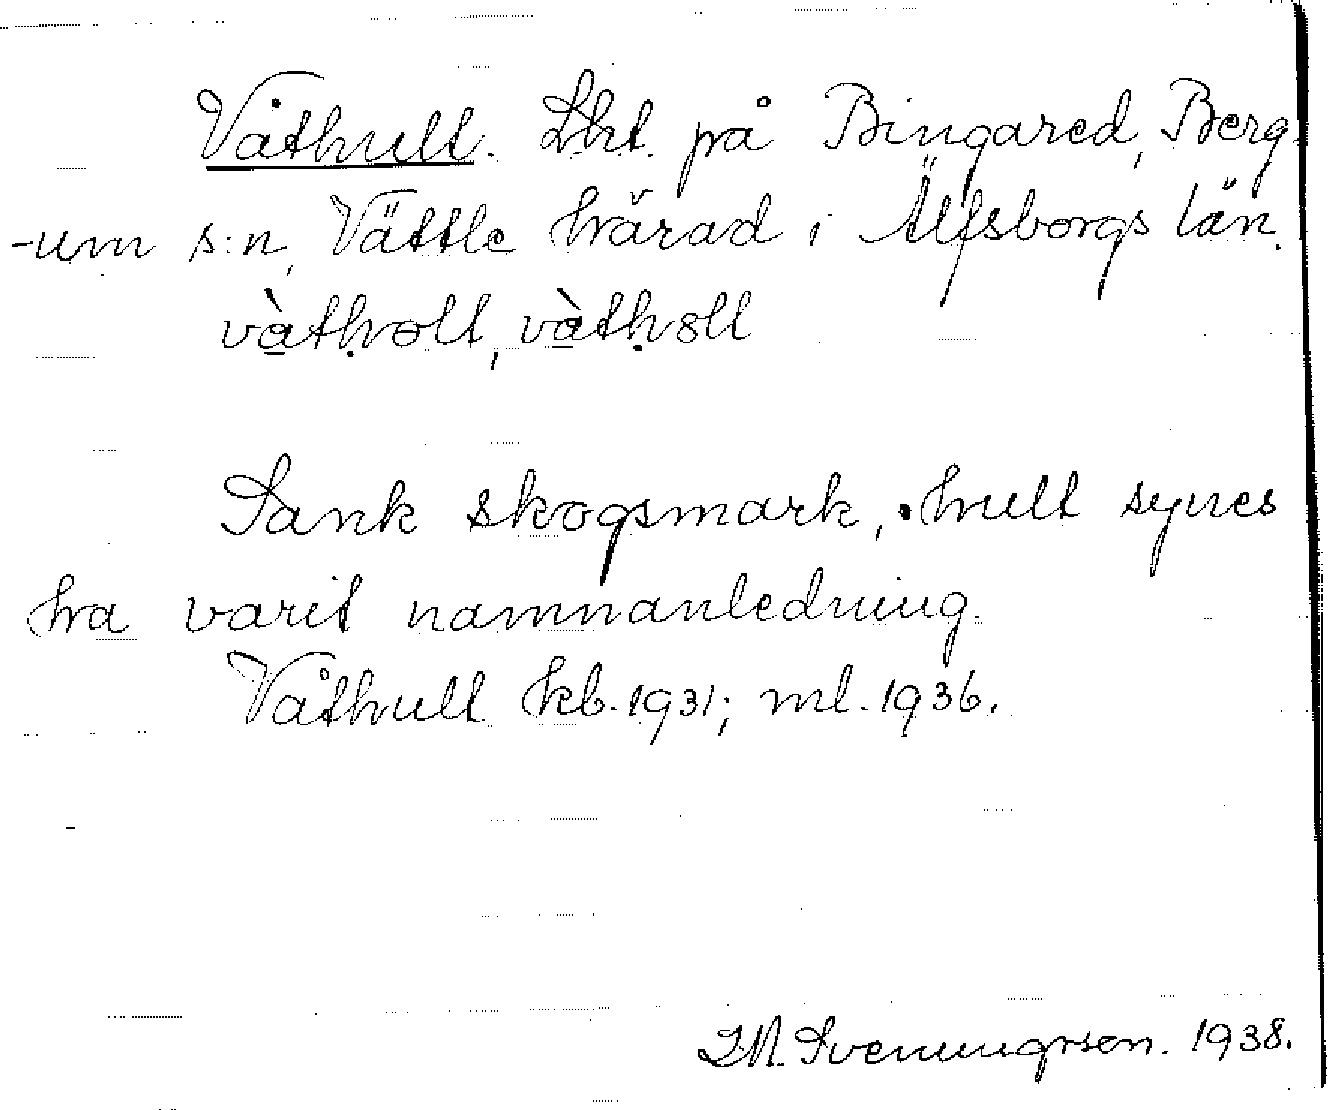 Våthult. Lht. på Bingared, Berg-
-um s:n, Vättle härad i Älfsborgs län.
vàtḥolt, vàtḥolt
Sank skogsmark, hult synes
ha varit namnanledning.
Våthult hkb. 1931; ml. 1936.
Sveningsson. 1938.